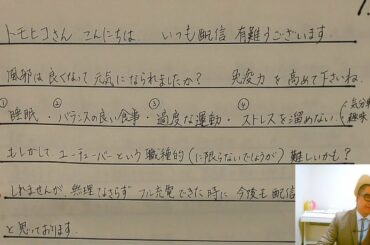 トモヒコさん こんにちは。 いつも配信 有難うございます。
風邪は良くなって元気になられましたか? 免疫力を高めて下さいね。
①睡眠・②バランスの良い食事・③適度な運動・④ストレスを溜めない(・気分
趣味
もしかして、ユーチューバーという職種的(に限らないでしょうが)難しいかも?
しれませんが、無理なさらず フル充電できた時に 今後も配信
と思っております。